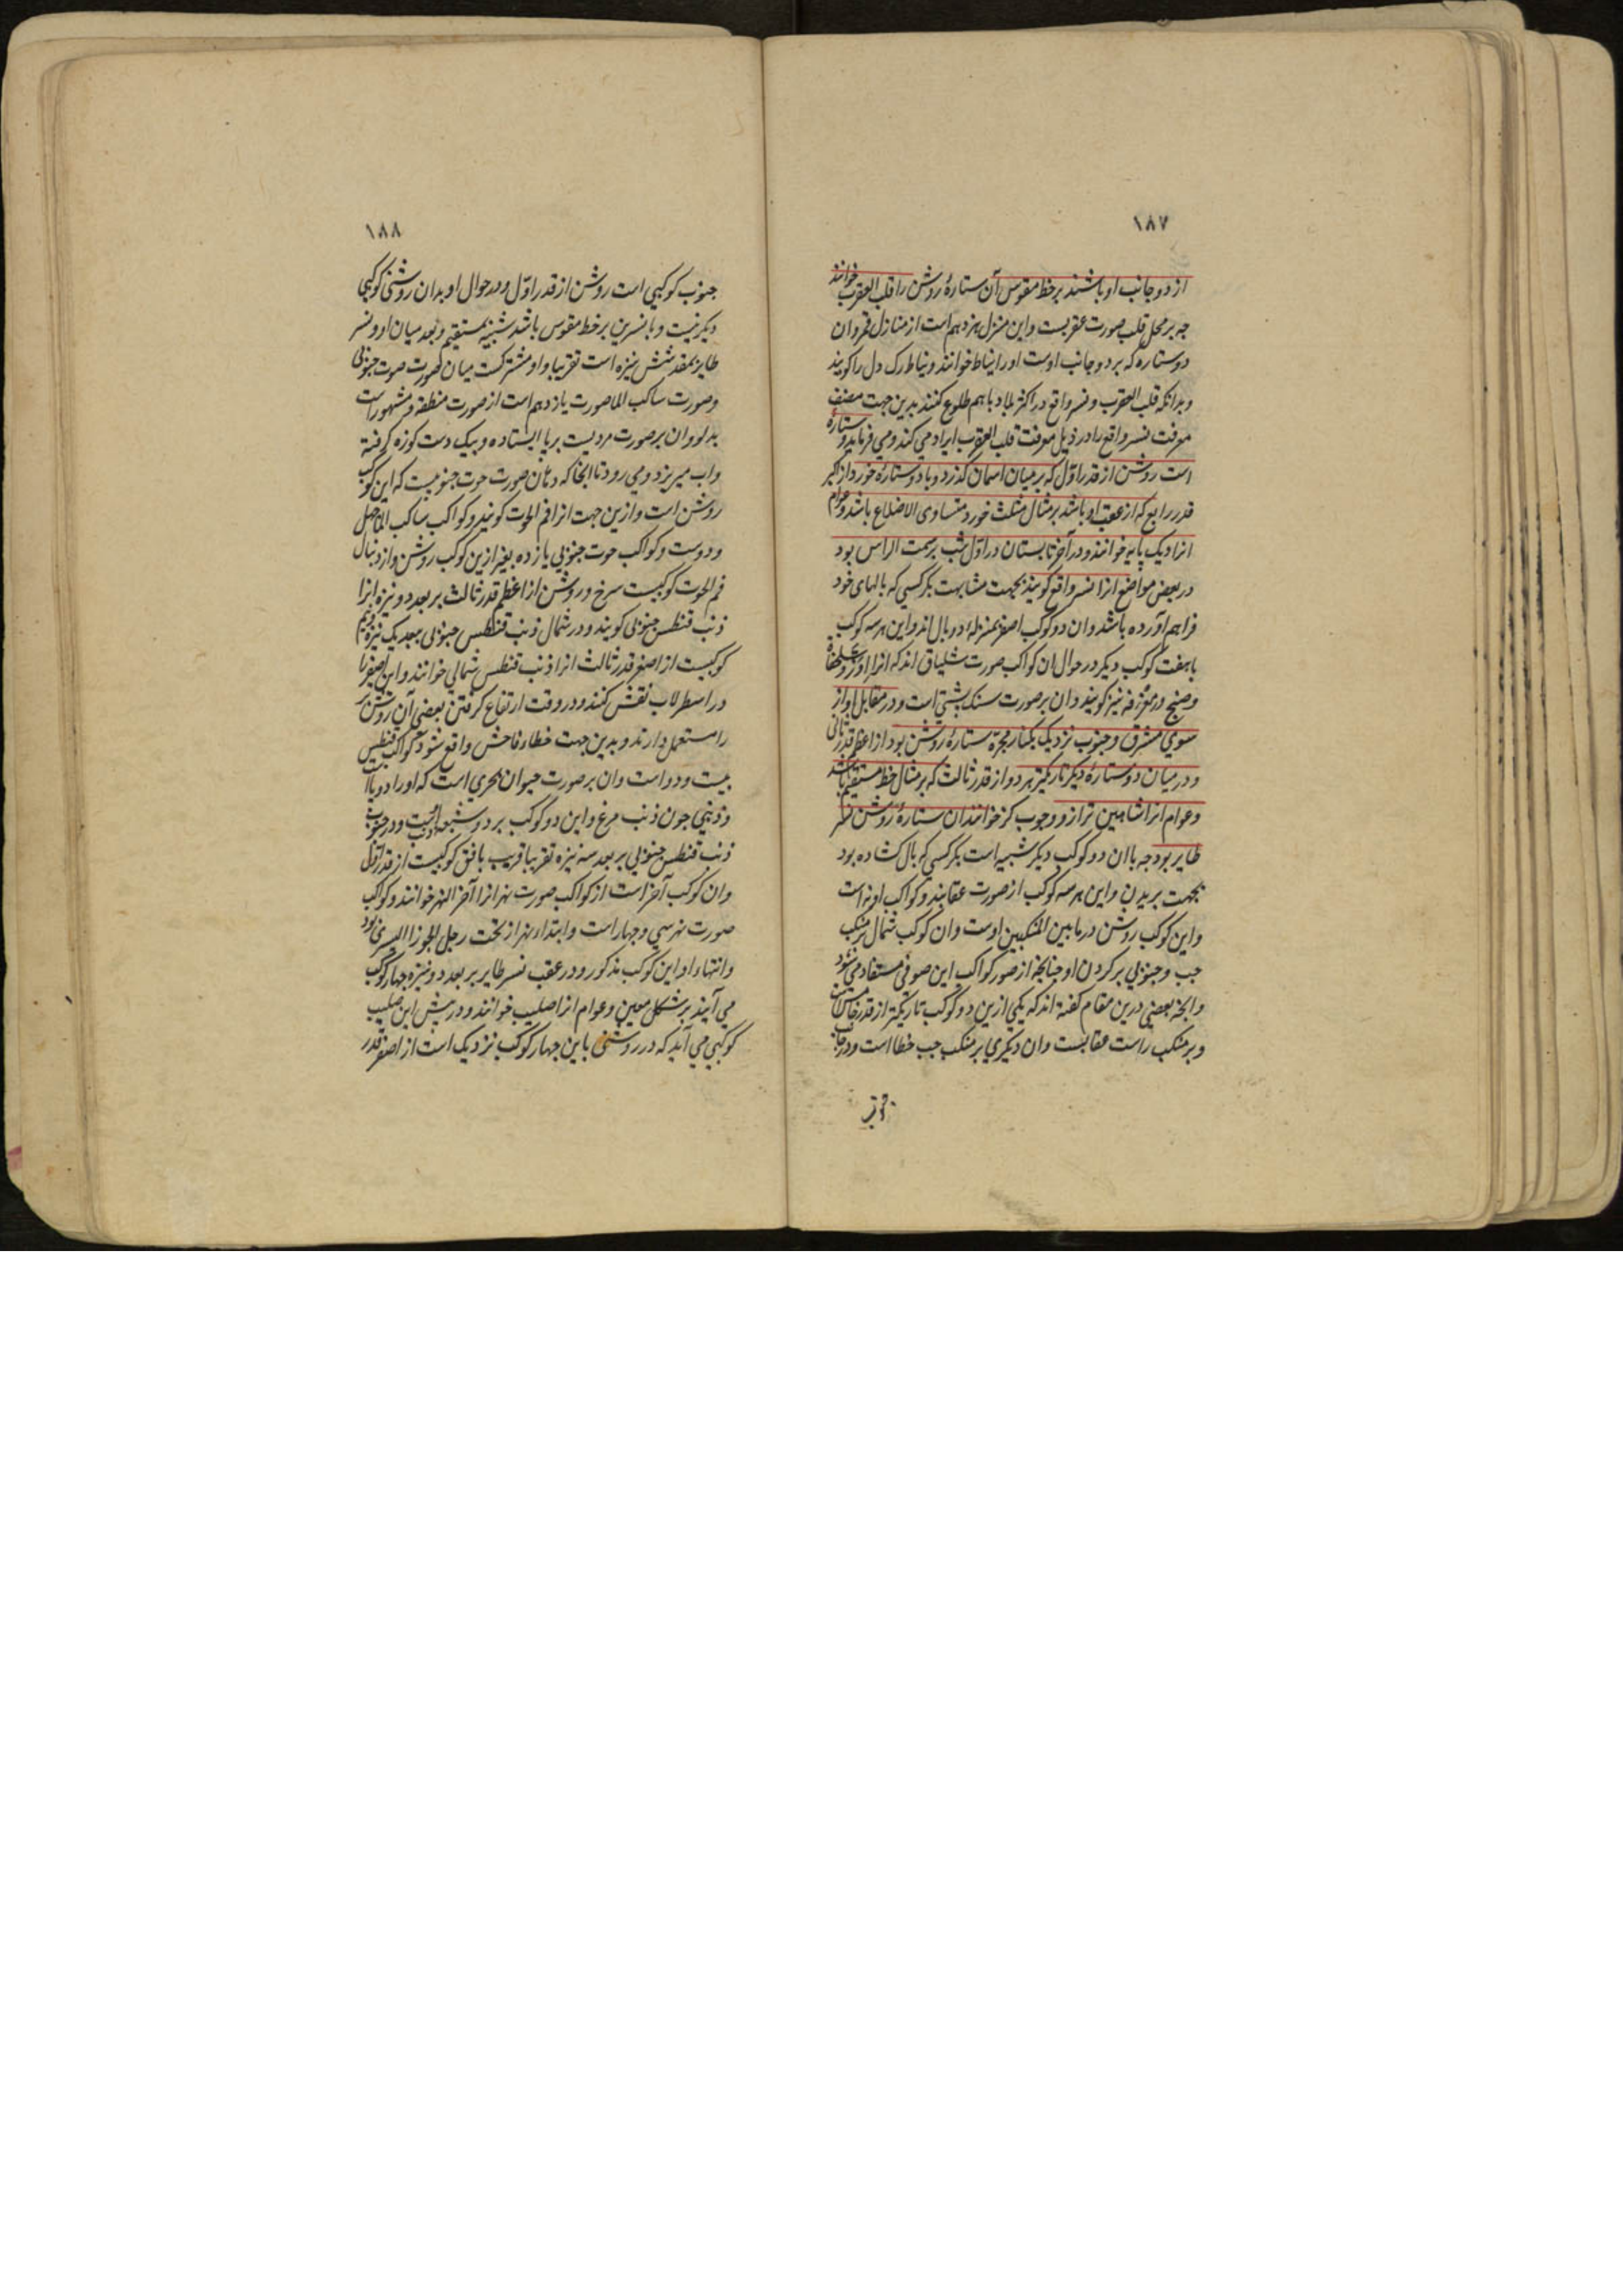 ۱۸۷
از دو جانب او باشند بر خط مقوس آن ستارهٔ روشن را قلب العقرب خوانند
جه بر محل قلب صورت عقربست واین منزل هزدهم است از منازل قمر وان
دو ستاره که بر دو جانب اوست اورا نیاط خوانند و نیاط رک دل را کویند
وبدانکه قلب العقرب ونسر واقع در اکثر بلاد باهم طلوع کنند بدین جهت مصنف
معرفت نسر واقع را در ذیل معرفت قلب العقرب ایراد می کند ومی فرماید و ستارهٔ
است روشن از قدر اوّل که بر میان اسمان کذرد وبا دو ستارهٔ خورد از اکبر
قدر رابع که از عقب او باشد بر مثال مثلث خورد متساوی الاضلاع باشد وعوام
انرا دیک پایه خوانند ودر آخر تابستان در اوّل شب بر سمت الراس بود
در بعض مواضع انرا نسر واقع کویند بجهت مشابهت بکرکسی که بالهای خود
فراهم آورده باشد وان دو کوکب اصغر بمنزلهٔ دو بال اند واین هر سه کوکب
با هفت کوکب دیکر در حوال ان کواکب صورت شلیاق اند که انرا اوز وسلحفاة
وصنج ومعزفه نیز کویند وان بر صورت سنک پشتی است ودر مقابل او از
سوی مشرق وجنوب نزدیک بکنار مجرّه ستارهٔ روشن بود از اعظم قدر ثانی
ودر میان دو ستارهٔ دیکر تاریکتر هر دو از قدر ثالث که بر مثال خط مستقیم باشد
وعوام انرا شاهین ترازو وجوب کز خوانند ان ستارهٔ روشن نسر
طایر بود جه با ان دو کوکب دیکر شبیه است بکرکسی که بال کشاده بود
بجهت بریدن واین هر سه کوکب از صورت عقابند وکواکب او نه است
واین کوکب روشن در مابین المنکبین اوست وان کوکب شمال بر منکب
جب وجنوبی بر کردن او جنانجه از صور کواکب ابن صوفی مستفاد می شود
وانجه بعضی درین مقام کفته اند که یکی ازین دو کوکب تاریکتر از قدر خامس است
وبر منکب راست عقابست وان دیکری بر منکب جب خطا است ودر جانب
جنوب
۱۸۸
جنوب کوکبی است روشن از قدر اوّل ودر حوال او بدان روشنی کوکبی
دیکر نیست وبا نسرین بر خط مقوس باشد شبیه بمستقیم وبعد میان او ونسر
طایر بمقدر شش نیزه است تقریبا واو مشترکست میان صورت حوت جنوبی
وصورت ساکب الما صورت یازدهم است از صورت منطقه ومشهور است
بدلو وان بر صورت مردیست بر پا ایستاده وبیک دست کوزه کرفته
واب میریزد ومی رود تا انجا که دهان صورت حوت جنوبیست که این کوکب
روشن است وازین جهت انرا فم الحوت کویند وکواکب ساکب الما جهل
ودوست وکواکب حوت جنوبی یازده بغیر ازین کوکب روشن واز دنبال
فم الحوت کوکبیست سرخ وروشن از اعظم قدر ثالث بر بعد دو نیزه انرا
ذنب قنطس جنوبی کویند ودر شمال ذنب قنطس جنوبی ببعد یک نیزه ونیم
کوکبیست از اصغر قدر ثالث انرا ذنب قنطس شمالی خوانند واین اصغر را
در اسطرلاب نقش کنند ودر وقت ارتفاع کرفتن بعضی آن روشن تر
را مستعمل دارند وبدین جهت خطاء فاحش واقع شود وکواکب قنطس
بیست ودو است وان بر صورت حیوان بحری است که اورا دو پا است
وذنبی جون ذنب مرغ واین دو کوکب بر دو شعبه ذنب است ودر جنوب
ذنب قنطس جنوبی بر بعد سه نیزه تقریبا قریب بافق کوکبیست از قدر اوّل
وان کوکب آخر است از کواکب صورت نهر انرا آخر النهر خوانند وکواکب
صورت نهر سی وجهار است وابتداء نهر از تحت رجل الجوزا الیسری بود
وانتهاء او این کوکب مذکور ودر عقب نسر طایر بر بعد دو نیزه جهار کوکب
می آیند بر شکل معین وعوام انرا صلیب خوانند ودر پیش این صلیب
کوکبی می آید که در روشنی باین جهار کوکب نزدیک است از اصغر قدر